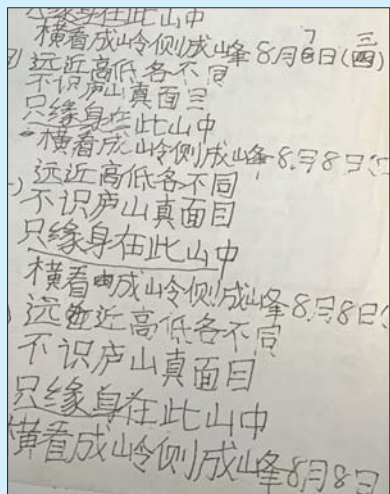 只缘身在此山中
横看成岭侧成峰 8月7日(三)
远近高低各不同
不识庐山真面目
只缘身在此山中
横看成岭侧成峰 8月8日(
远近高低各不同
不识庐山真面目
只缘身在此山中
横看成岭侧成峰 8月8日(
远近高低各不同
不识庐山真面目
只缘身在此山中
横看成岭侧成峰 8月8日